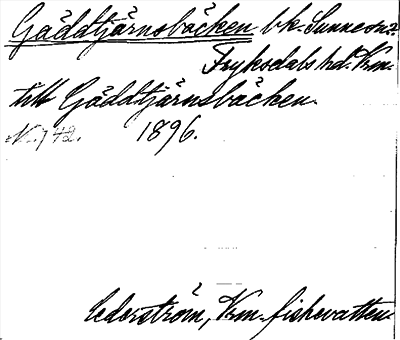 Gäddtjärnsbäcken bk. Sunne sn.
Fryksdals hd. Vrm.
till Gäddtjärnsbäcken.
N. 742. 1896.
Cederström, Vrm. fiskevatten.